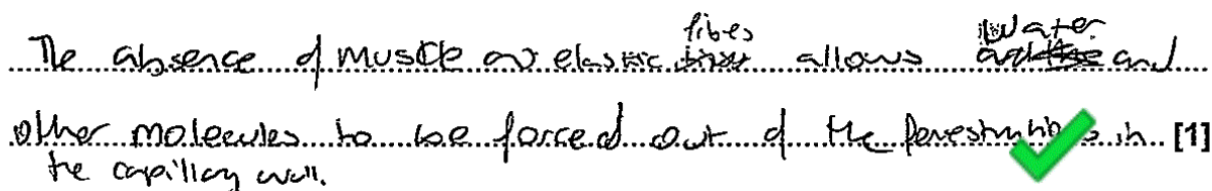 The absence of muscle or elastic fibres allows water and
other molecules to be forced out of the fenestrations in [1]
the capillary wall.